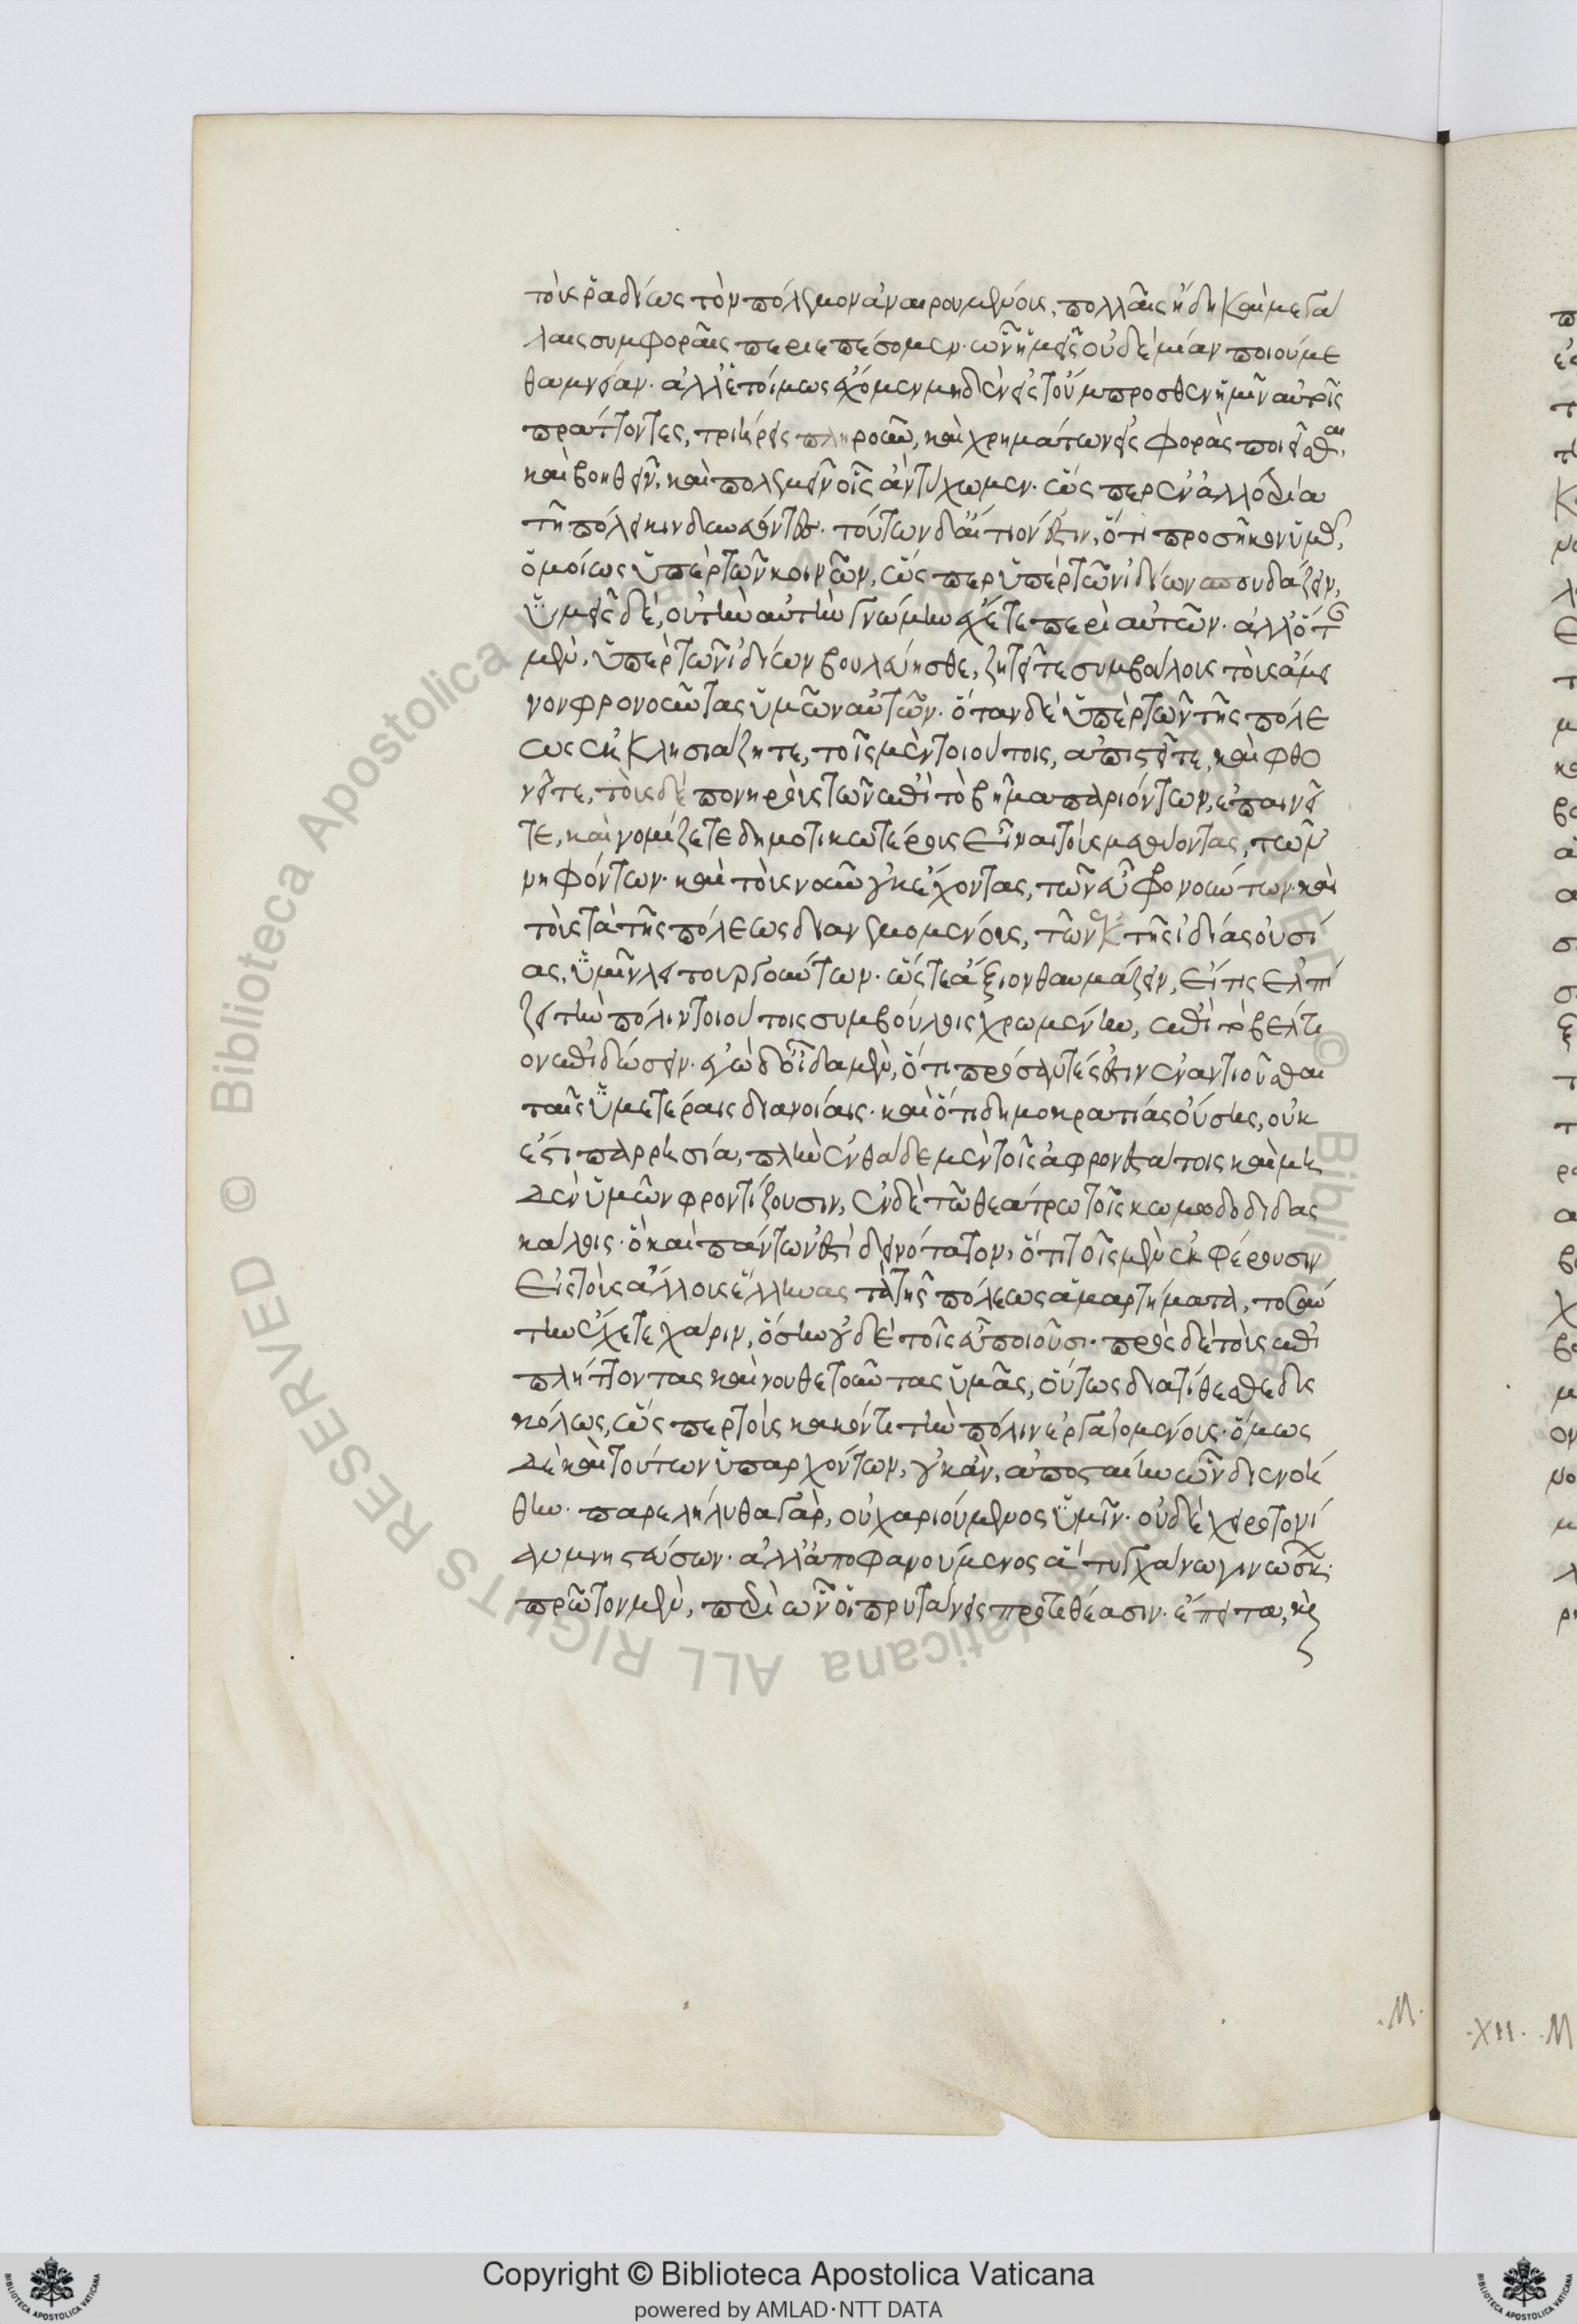 τοὺς ῥαδίως τὸν πόλεμον ἀναιρουμένους, πολλαῖς ἤδη καὶ μεγά
λαις συμφοραῖς περιεπέσομεν· ὧν ἡμεῖς οὐδεμίαν ποιούμε
θα μνείαν· ἀλλ' ἑτοίμως ἔχομεν μηδὲν εἰς τοὔμπροσθεν ἡμῖν αὐτοῖς
πράττοντες, τριήρεις πληροῦν, καὶ χρημάτων εἰσφορὰς ποιεῖσθαι,
καὶ βοηθεῖν, καὶ πολεμεῖν οἷς ἂν τύχωμεν· ὥσπερ ἐν ἀλλοτρία
τῆ πόλει κινδυνεύοντες. τούτων δ' αἴτιόν ἐστιν, ὅτι προσῆκον ὑμᾶς,
ὁμοίως ὑπὲρ τῶν κοινῶν, ὥσπερ ὑπὲρ τῶν ἰδίων σπουδάζειν,
ὑμεῖς δὲ, οὐ τὴν αὐτὴν γνώμην ἔχετε περὶ αὐτῶν· ἀλλ' ὅταν
μὲν, ὑπὲρ τῶν ἰδίων βουλεύησθε, ζητεῖτε συμβούλους τοὺς ἄμει
νον φρονοῦντας ὑμῶν αὐτῶν· ὅταν δὲ ὑπὲρ τῶν τῆς πόλε
ως ἐκκλησιάζητε, τοῖς μὲν τοιούτοις, ἀπιστεῖτε, καὶ φθο
νεῖτε, τοὺς δὲ πονηροὺς τῶν ἐπὶ τὸ βῆμα παριόντων, ἐπαινεῖ
τε, καὶ νομίζετε δημοτικωτέρους εἶναι τοὺς μεθύοντας, τῶν
νηφόντων· καὶ τοὺς νοῦν οὐκ ἔχοντας, τῶν εὖ φρονούντων· καὶ
τοὺς τὰ τῆς πόλεως διανεμομένους, τῶν ἐκ τῆς ἰδίας οὐσί
ας, ὑμῖν λειτουργούντων· ὥστε ἄξιον θαυμάζειν, εἴ τις ἐλπί
ζει τὴν πόλιν τοιούτοις συμβούλοις χρωμένην, ἐπὶ τὸ βέλτι
ον ἐπιδώσειν. ἐγὼ δ' οἶδα μὲν, ὅτι πρόσαντές ἐστιν ἐναντιοῦσθαι
ταῖς ὑμετέραις διανοίαις· καὶ ὅτι δημοκρατίας οὔσης, οὐκ
ἔστι παρρησία, πλὴν ἐνθάδε μὲν τοῖς ἀφρονεστάτοις καὶ μη
δὲν ὑμῶν φροντίζουσιν, ἐν δὲ τῶ θεάτρω τοῖς κωμωδοδιδας
κάλοις· ὃ καὶ πάντων ἐστὶ δεινότατον, ὅτι τοῖς μὲν ἐκφέρουσιν
εἰς τοὺς ἄλλους ἕλληνας τὰ τῆς πόλεως ἁμαρτήματα, τοσαύ
την ἔχετε χάριν, ὅσην οὐδὲ τοῖς εὖ ποιοῦσι· πρὸς δὲ τοὺς ἐπι
πλήττοντας καὶ νουθετοῦντας ὑμᾶς, οὕτως διατίθεσθε δυς
κόλως, ὥσπερ τοὺς κακόν τι τὴν πόλιν ἐργαζομένους· ὅμως
δὲ καὶ τούτων ὑπαρχόντων, οὐκ ἂν, ἀποσταίην ὧν διενοή
θην· παρελήλυθα γὰρ, οὐ χαριούμενος ὑμῖν· οὐδὲ χειροτονί
αν μνηστεύσων· ἀλλ' ἀποφανούμενος ἃ τυγχάνω γινώσκων·
πρῶτον μὲν, περὶ ὧν οἱ πρυτάνεις προτεθέασιν· ἔπειτα, καὶ
.M.
.XII. .M
Copyright © Biblioteca Apostolica Vaticana
powered by AMLAD·NTT DATA